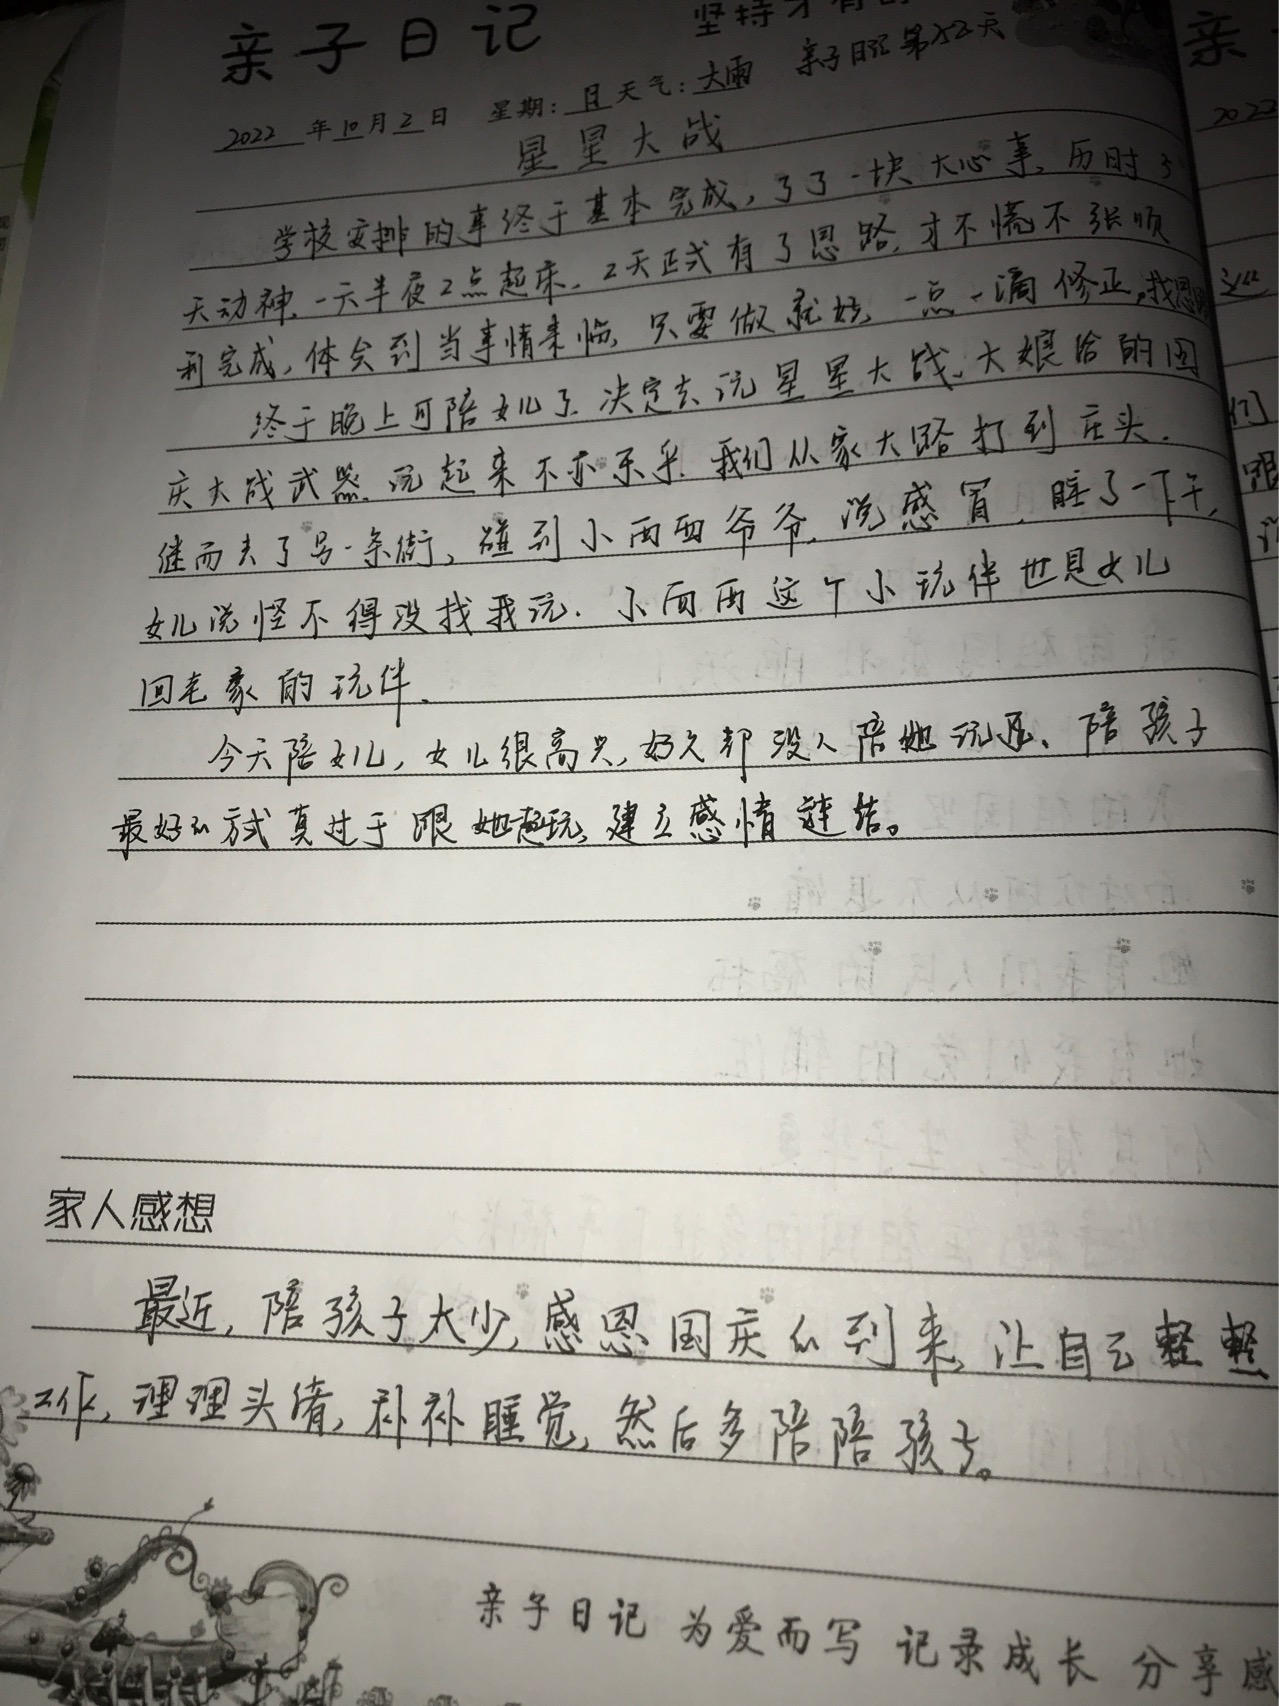 亲子日记
坚持才有
亲子日记第 天
2022 年 10 月 2 日 星期: 日 天气: 大雨
星星大战
学校安排的事终于基本完成,了了一块大心事,历时3
天动神,一天半夜2点起床,2天正式有了思路,才不慌不张顺
利完成,体会到当事情来临,只要做就好,一点一滴修正,我
终于晚上可陪女儿了,决定去玩星星大战,大娘给的国
庆大战武器,玩起来不亦乐乎,我们从家大路打到庄头,
继而去了另一条街,碰到小雨雨爷爷,说感冒,睡了一下午,
女儿说怪不得没找我玩.小雨雨这个小玩伴也是女儿
回老家的玩伴.
今天陪女儿,女儿很高兴,好久都没人陪她玩过、陪孩子
最好的方式莫过于跟她一起玩,建立感情链结。
家人感想
最近,陪孩子太少,感恩国庆的到来,让自己整整
工作,理理头绪,补补睡觉,然后多陪陪孩子。
亲子日记 为爱而写 记录成长 分享感
亲
2022
们
跟